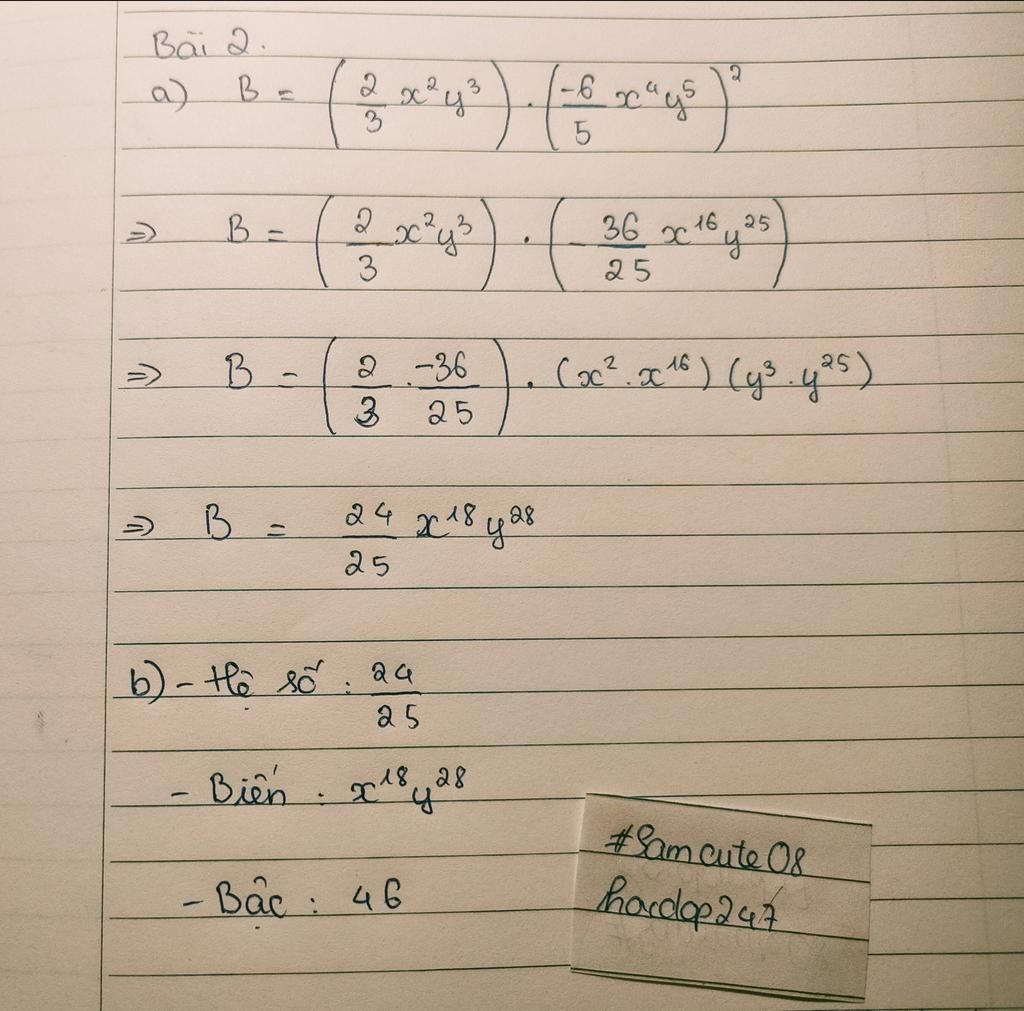 Bài 2.
a) B = (2/3 x²y³) . (-6/5 x⁴y⁵)²
=> B = (2/3 x²y³) . (- 36/25 x¹⁶y²⁵)
=> B = (2/3 . -36/25) . (x² . x¹⁶) (y³ . y²⁵)
=> B = 24/25 x¹⁸y²⁸
b) - Hệ số : 24/25
- Biến : x¹⁸y²⁸
- Bậc : 46
#Samcute08
hoidap247